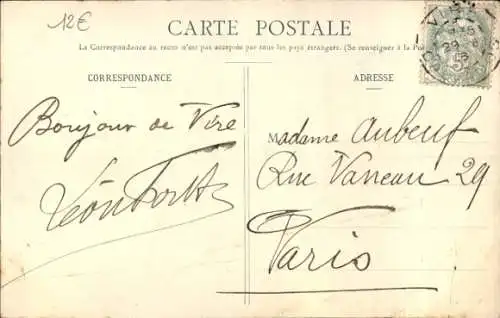 12€
CARTE POSTALE
La Correspondance au recto n'est pas acceptée par tous les pays étrangers. (Se renseigner à la Po
CORRESPONDANCE
ADRESSE
Bonjour de Vire
Madame Aubeuf
Rue Vaneau 29
Paris